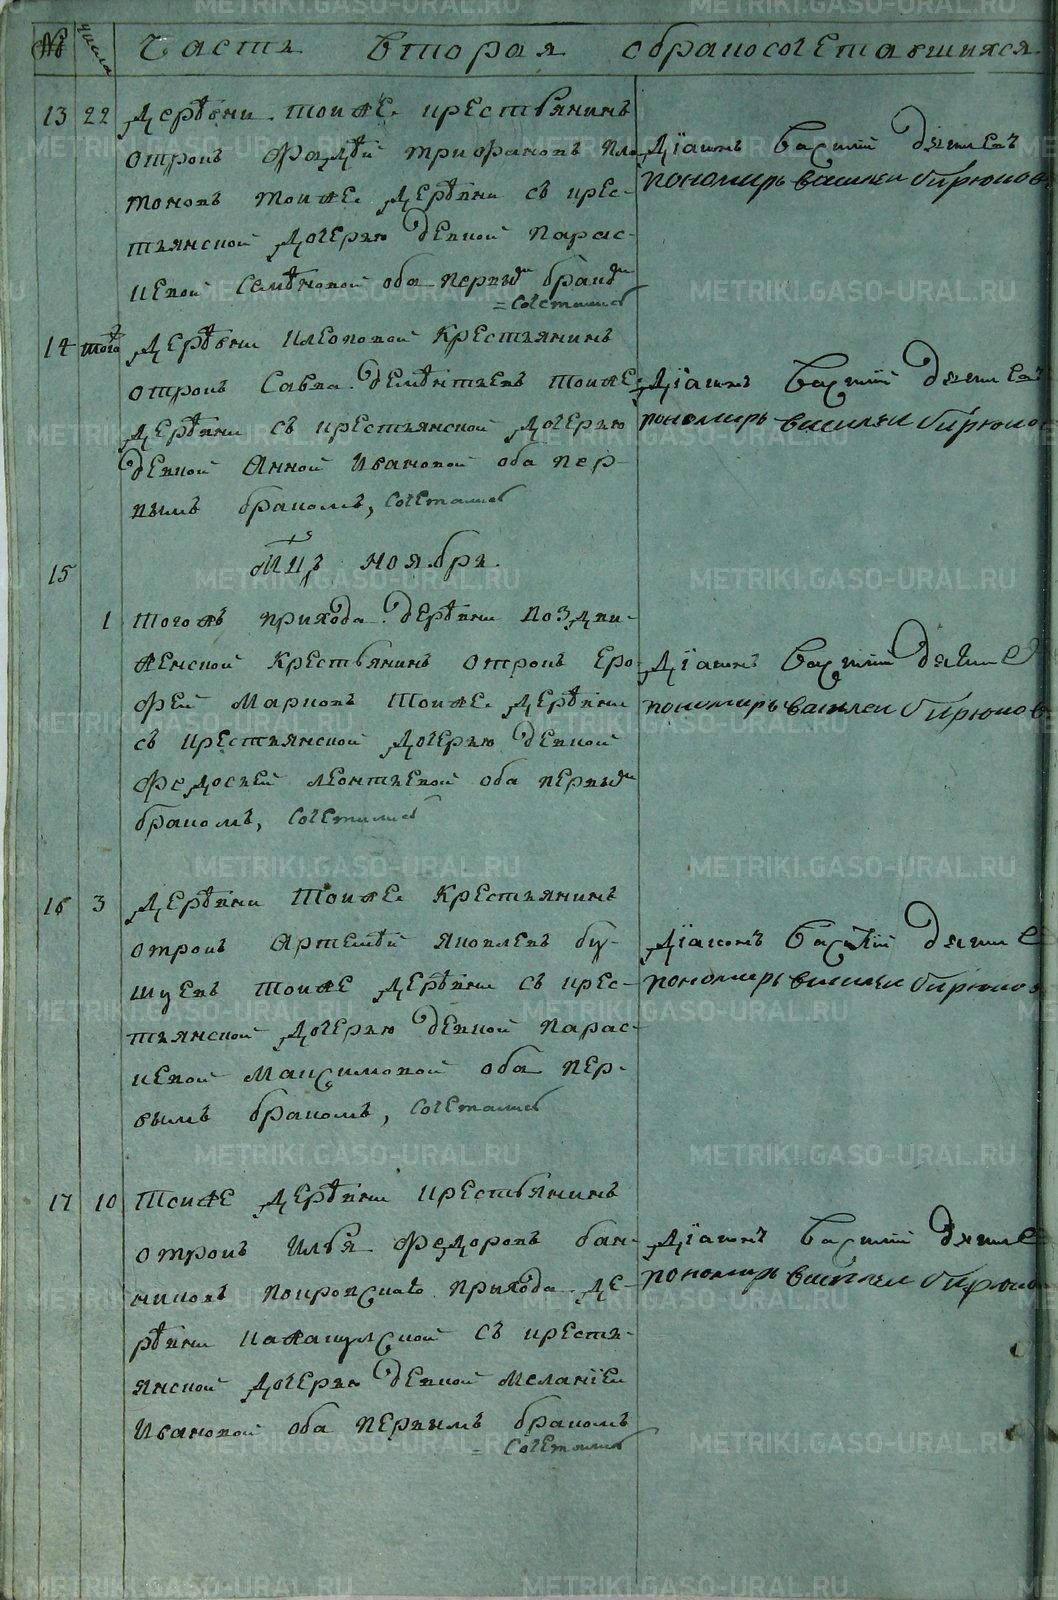 № числа Часть вторая обракосочетавшихся
13 22 Деревни тоиже крестьянинъ
отрокъ Фадѣй Трифановъ Пла-
тоновъ тоиже деревѣни съ крес-
тьянской дочерью девкой Парас-
кевой Семѣновой оба первым браком
= сочетались
Дїаконъ Василий
пономарь василеи Бирюков
14 того Деревѣни Клеопокой крестьянинъ
отрокъ Савва Дементьевъ тоиже
деревѣни съ крестьянской дочерью
девкой Анной Ивановой оба пер-
вымъ бракомъ, сочетались
Дїаконъ Василий
пономарь василеи Бирюков
Мцъ ноябрь
15
1 тогожъ прихода деревѣни Воздви-
женской крестьянинъ отрокъ Еро-
фей Марковъ тоиже деревѣни
съ крестьянской дочерью девкой
Федосьей Леонтьевой оба первым
бракомъ, сочетались
Дїаконъ Василий
пономарь василеи Бирюков
16 3 Деревѣни тоиже крестьянинъ
отрокъ Артемѣй Яковлевъ Бу-
шуевъ тоиже деревѣни съ крес-
тьянской дочерью девкой Парас-
кевой Максимовой оба пер-
вымъ бракомъ, сочетались
Дїаконъ Василий
пономарь василеи Бирюков
17 10 тоиже деревѣни крестьянинъ
отрокъ Илья Федоровъ Бан-
никовъ Покровскаго прихода де-
рѣвни Кажакулской съ кресть-
янской дочерью девкой Меланїеи
Ивановой оба первымъ бракомъ
= сочетались
Дїаконъ Василий
пономарь василеи Бирюков
METRIKI.GASO-URAL.RU